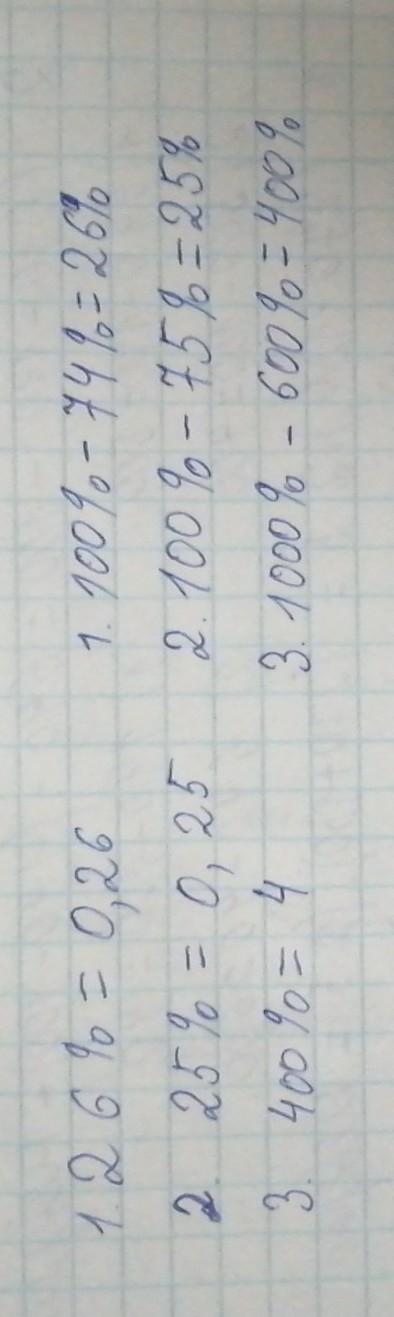 1. 26% = 0,26
2. 25% = 0,25
3. 400% = 4
1. 100% - 74% = 26%
2. 100% - 75% = 25%
3. 1000% - 600% = 400%